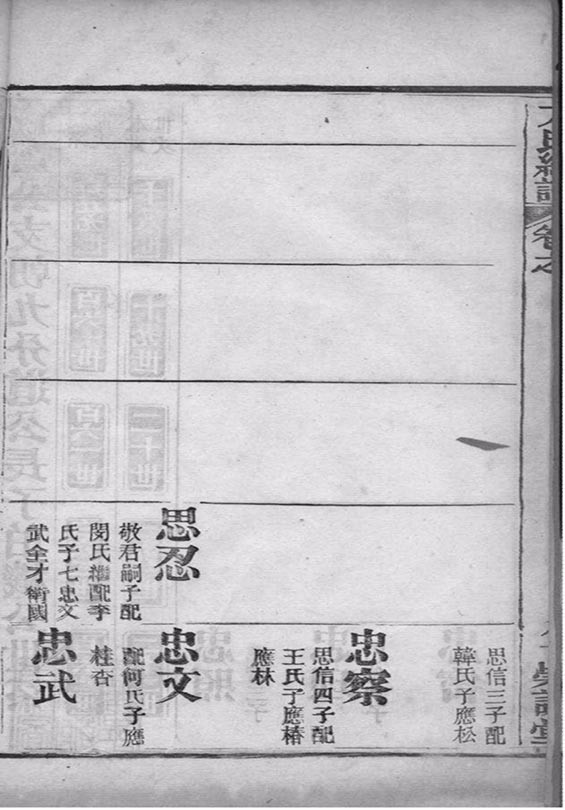 氏總譜
卷之
思忍
敬君嗣子配
閔氏繼配李
氏子七忠文
武全才衛國
思信三子配
韓氏子應松
忠察
思信四子配
王氏子應椿
應林
忠文
配何氏子應
桂杏
忠武